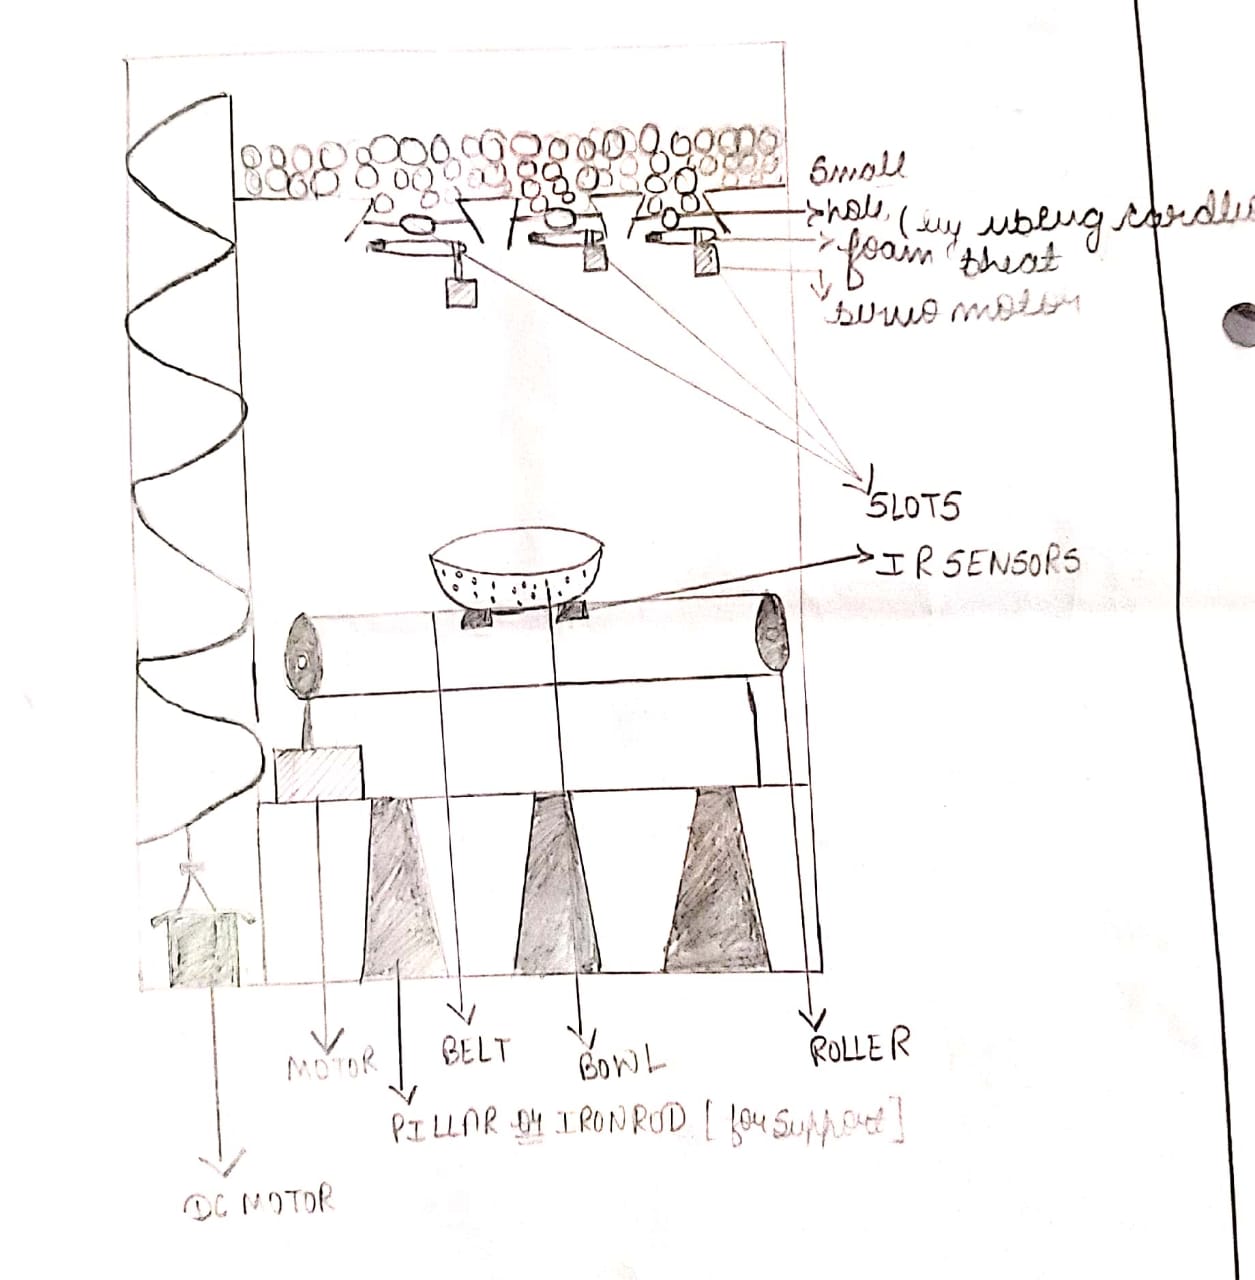 small
hole, (by using cardbo
foam sheat
servo motor
SLOTS
IR SENSORS
MOTOR
BELT
BOWL
ROLLER
PILLAR or IRON ROD [for support]
DC MOTOR